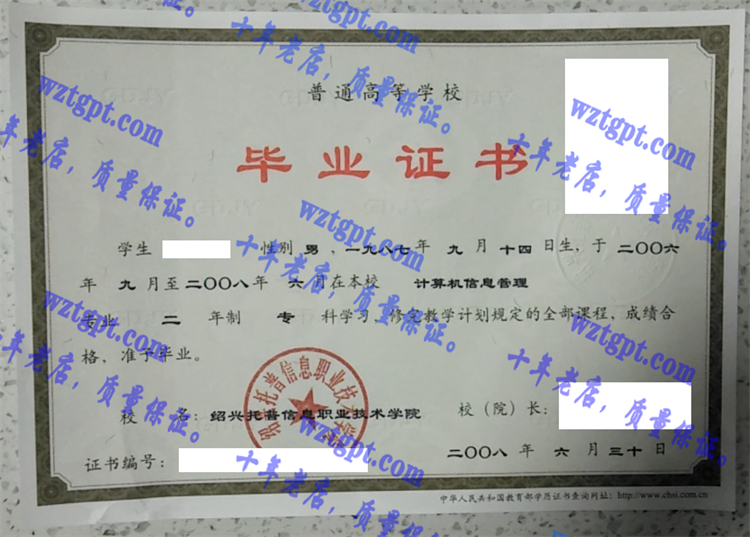 普通高等学校
毕业证书
学生 性别 男 、一九八七年 九 月 十四 日生，于 二〇〇六
年 九 月至二〇〇八年 六 月在本校 计算机信息管理
专业 二 年制 专 科学习，修完教学计划规定的全部课程，成绩合
格，准予毕业。
校 名：绍兴托普信息职业技术学院 校（院）长：
证书编号： 二〇〇八 年 六 月 三十 日
中华人民共和国教育部学历证书查询网址：http://www.chsi.com.cn
绍兴托普信息职业技术学院
wztgpt.com
十年老店，质量保证。
wztgpt.com
十年老店，质量保证。
wztgpt.com
十年老店，质量保证。
wztgpt.com
十年老店，质量保证。
wztgpt.com
十年老店，质量保证。
wztgpt.com
十年老店，质量保证。
wztgpt.com
十年老店，质量保证。
wztgpt.com
十年老店，质量保证。